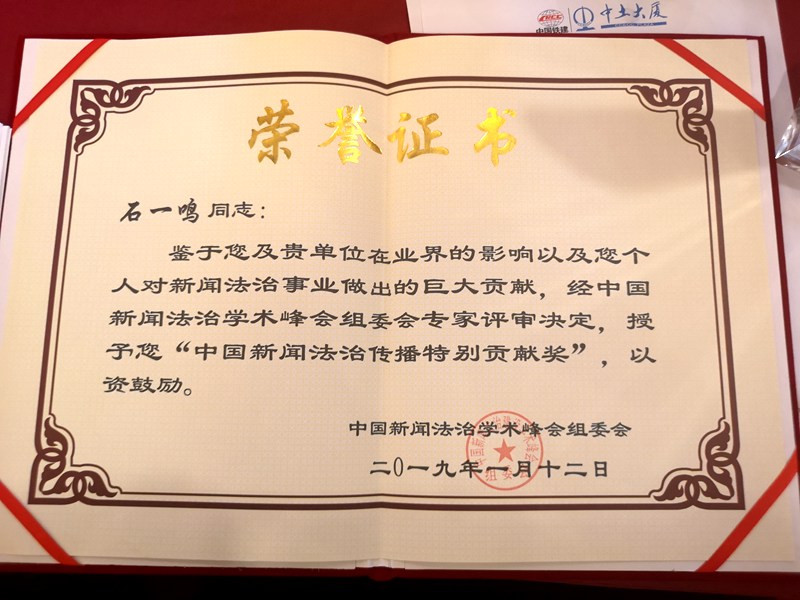 CRCC
中国铁建
中土大厦
荣誉证书
石一鸣 同志：
鉴于您及贵单位在业界的影响以及您个
人对新闻法治事业做出的巨大贡献，经中国
新闻法治学术峰会组委会专家评审决定，授
予您“中国新闻法治传播特别贡献奖”，以
资鼓励。
中国新闻法治学术峰会组委会
二〇一九年一月十二日